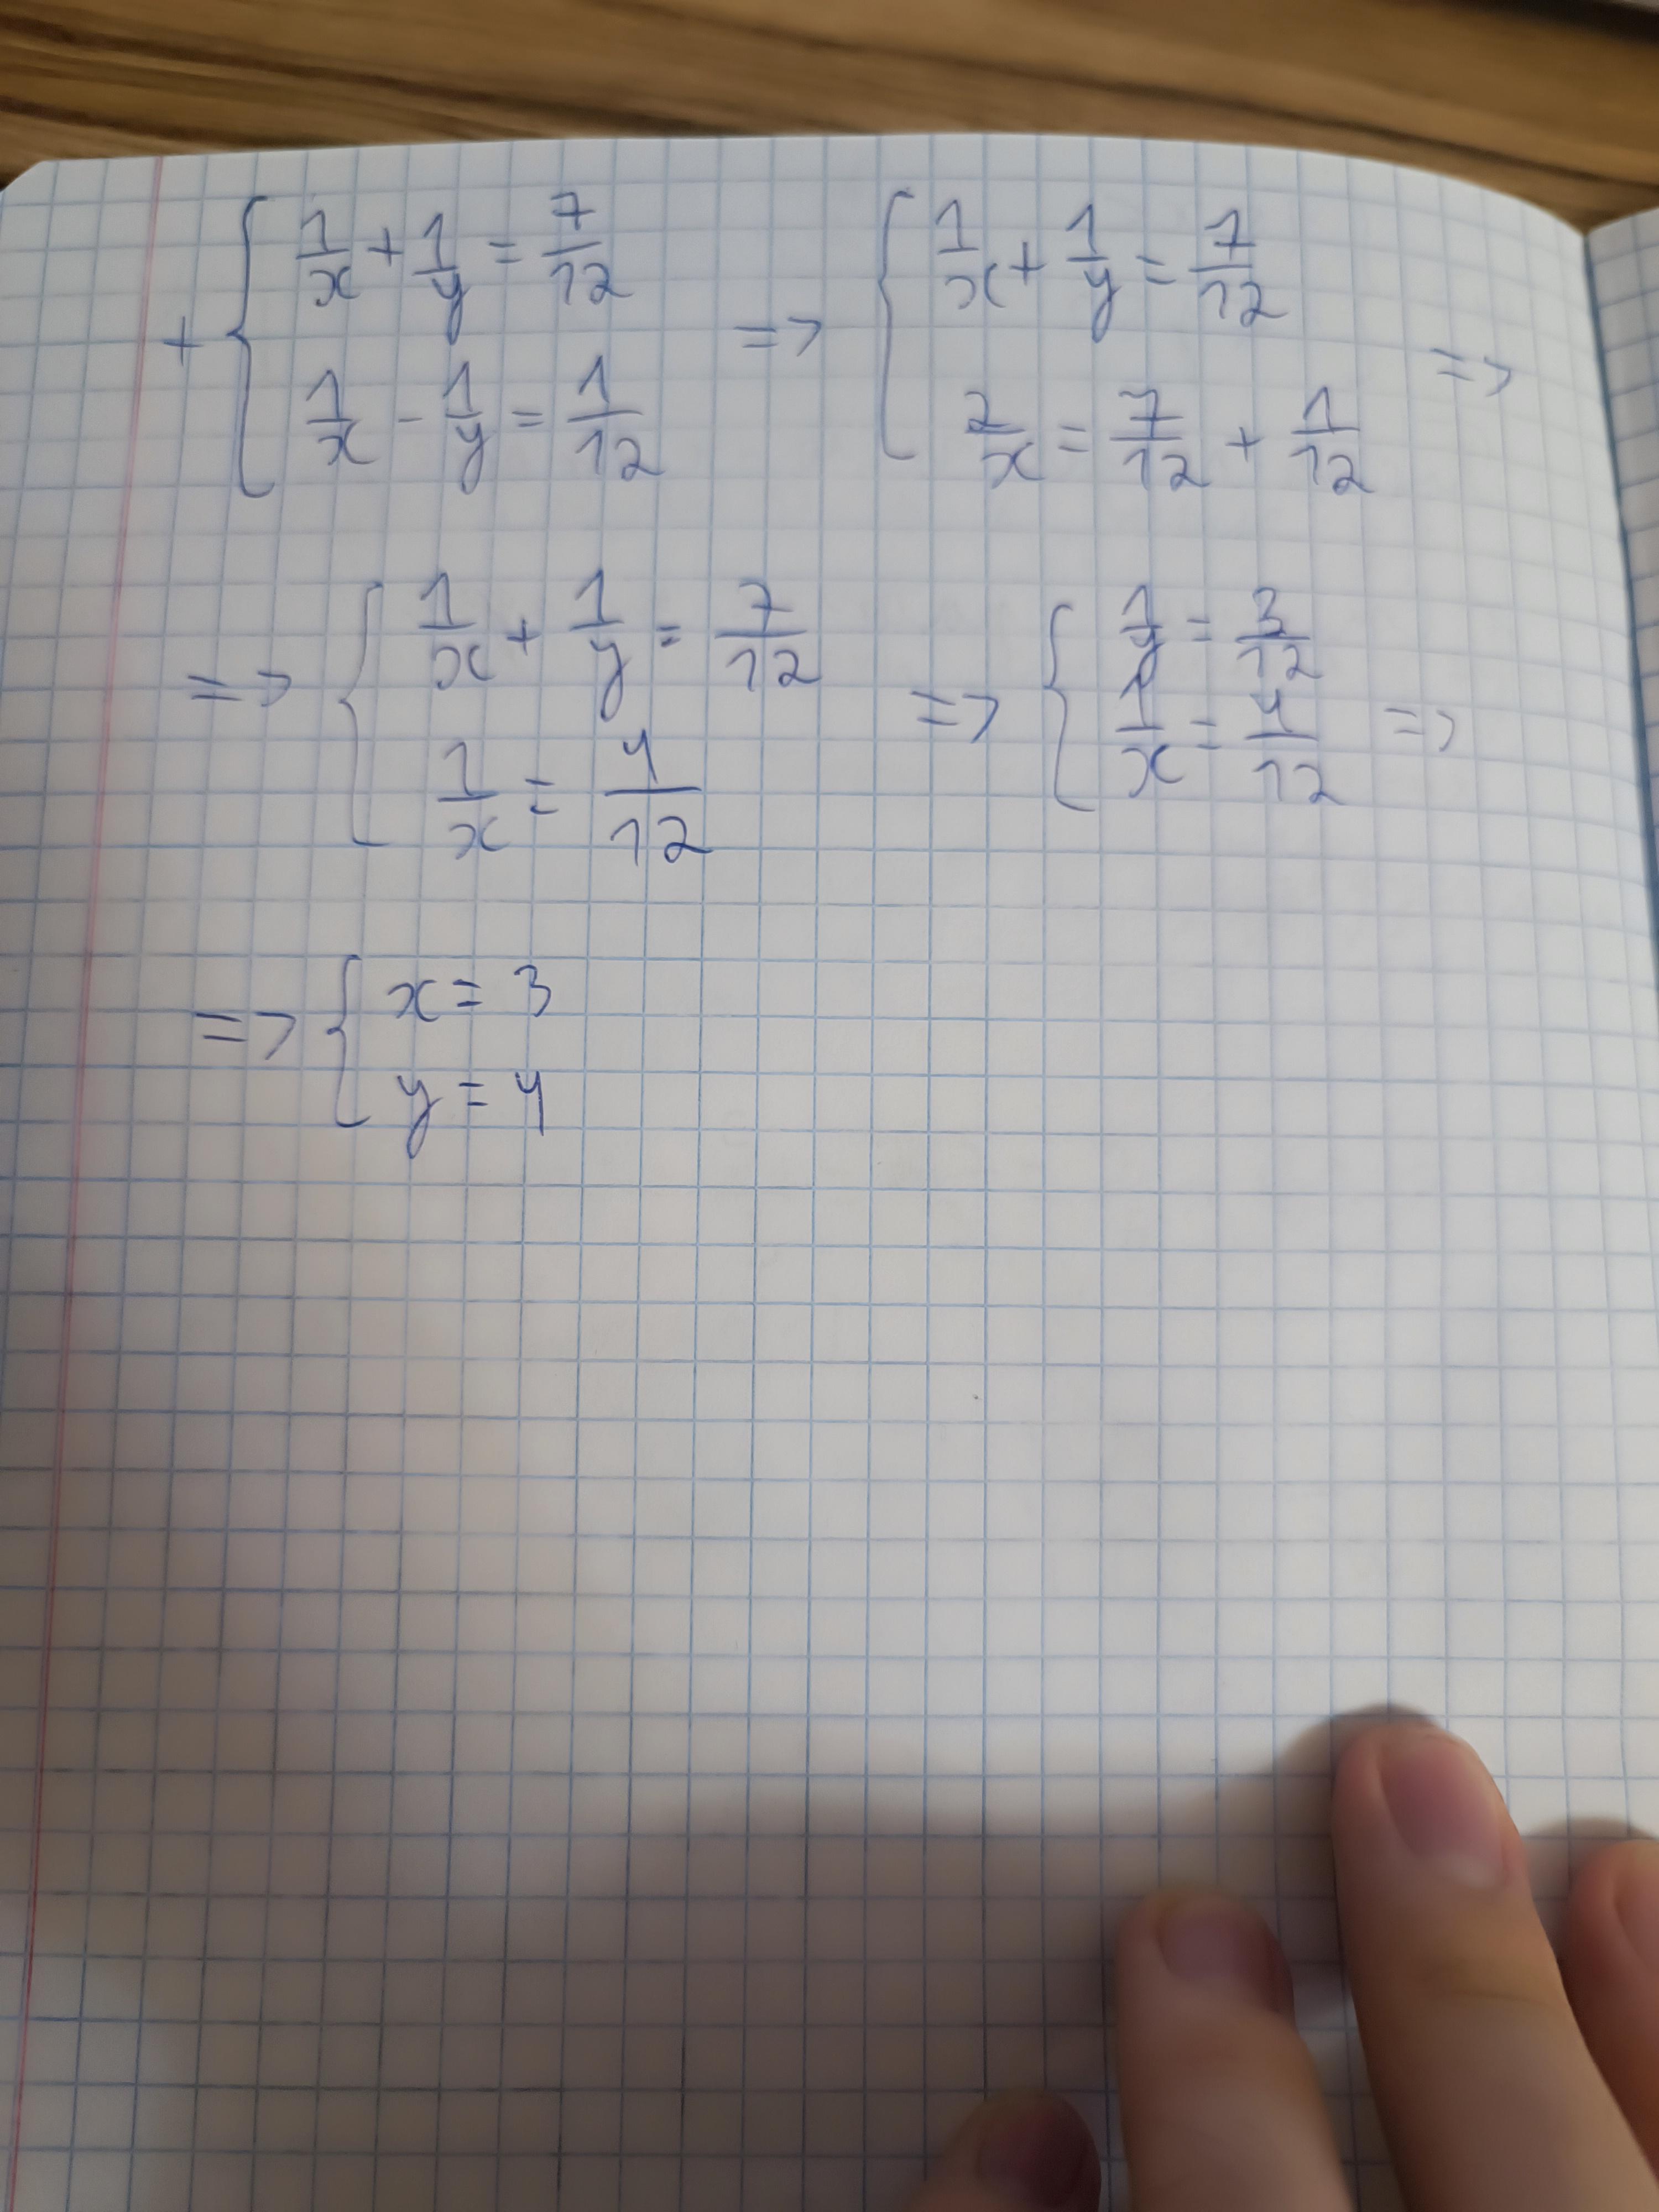 + { 1/x + 1/y = 7/12 => { 1/x + 1/y = 7/12 =>
1/x - 1/y = 1/12 2/x = 7/12 + 1/12
=> { 1/x + 1/y = 7/12 => { 1/y = 3/12 =>
1/x = 4/12 1/x = 4/12
=> { x = 3
y = 4